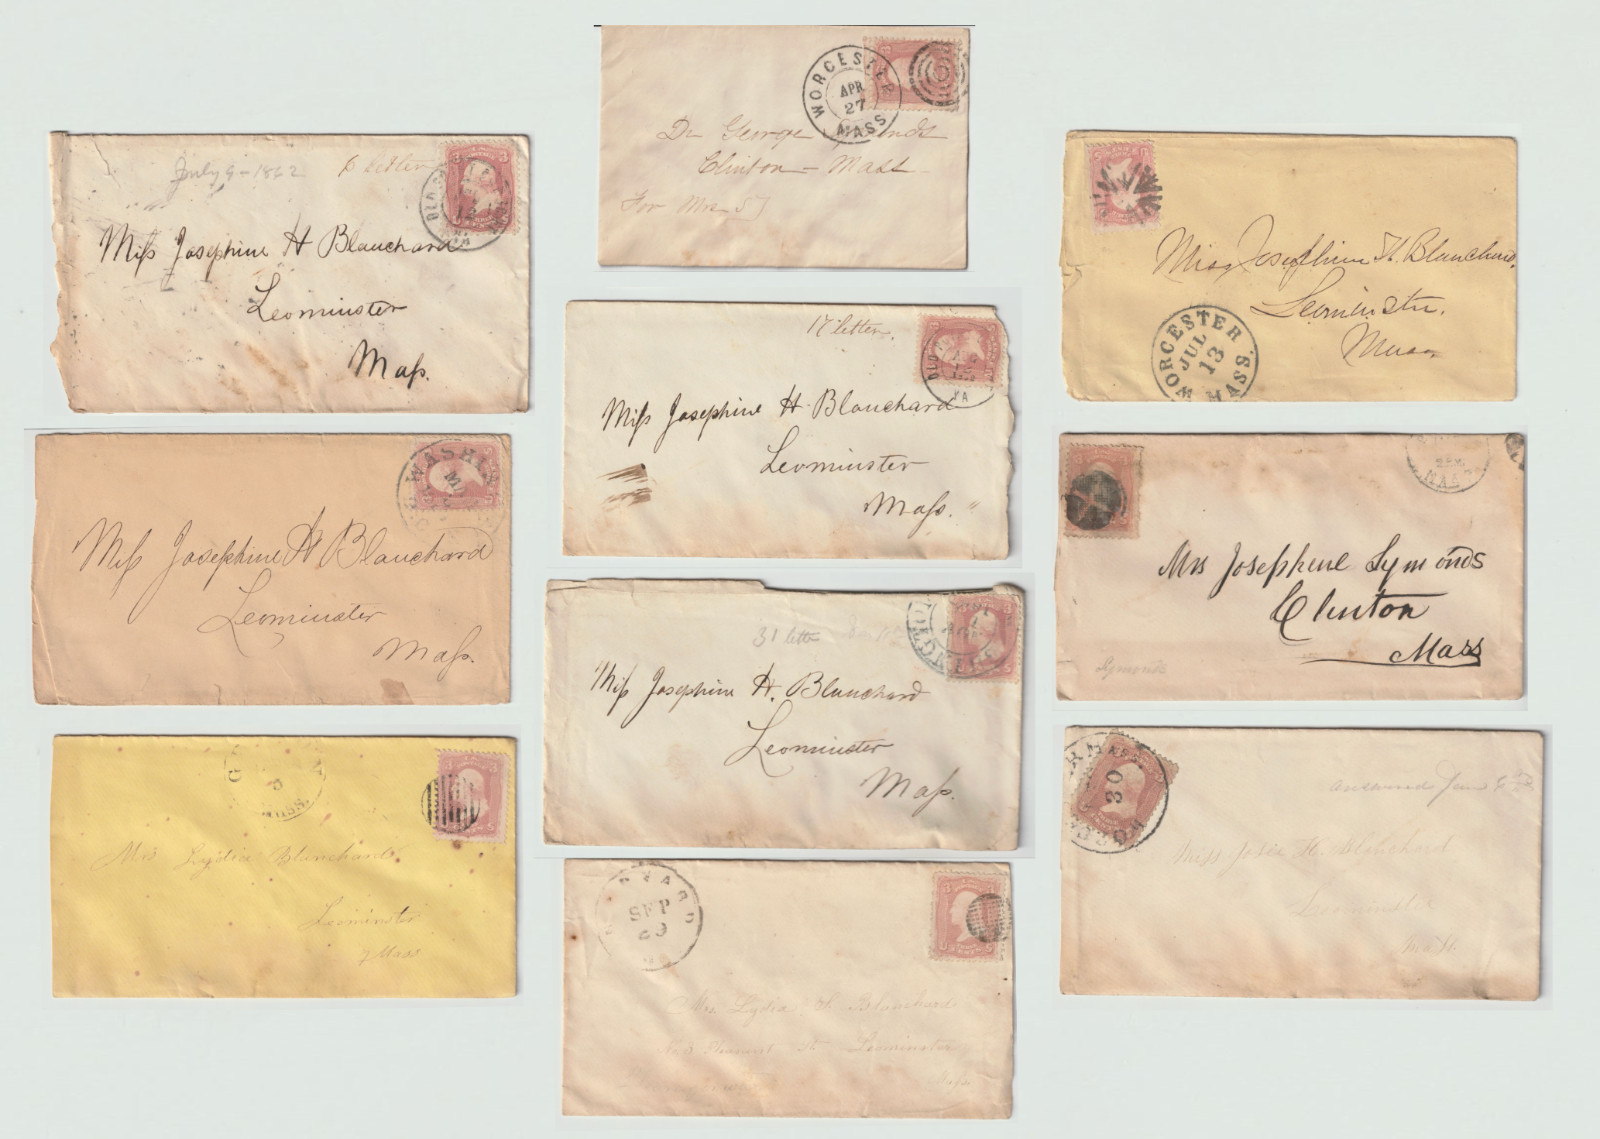 WORCESTER
APR
27
MASS
Dr George
Clinton - Mass
For Mrs S
July 9 - 1862
letter
Miss Josephine H Blanchard
Leominster
Mass.
17 letter.
VA
Miss Josephine H. Blanchard
Leominster
Mass.
Miss Josephine H. Blanchard,
Leominster.
Mass
WORCESTER
JUL
13
MASS.
WASHIN
Miss Josephine H Blanchard
Leominster
Mass.
Mrs Josephine Symonds
Clinton
Mass
Symonds
31 letter
INGTO
Miss Josephine H. Blanchard
Leominster
Mass.
MASS.
Mrs Lydia Blanchard
Leominster
Mass
SEP
Mrs. Lydia H Blanchard
No 3 Pleasant St Leominster
Mass
MASS.
30
answered Jan
Miss Josie H. Blanchard
Leominster
Mass.